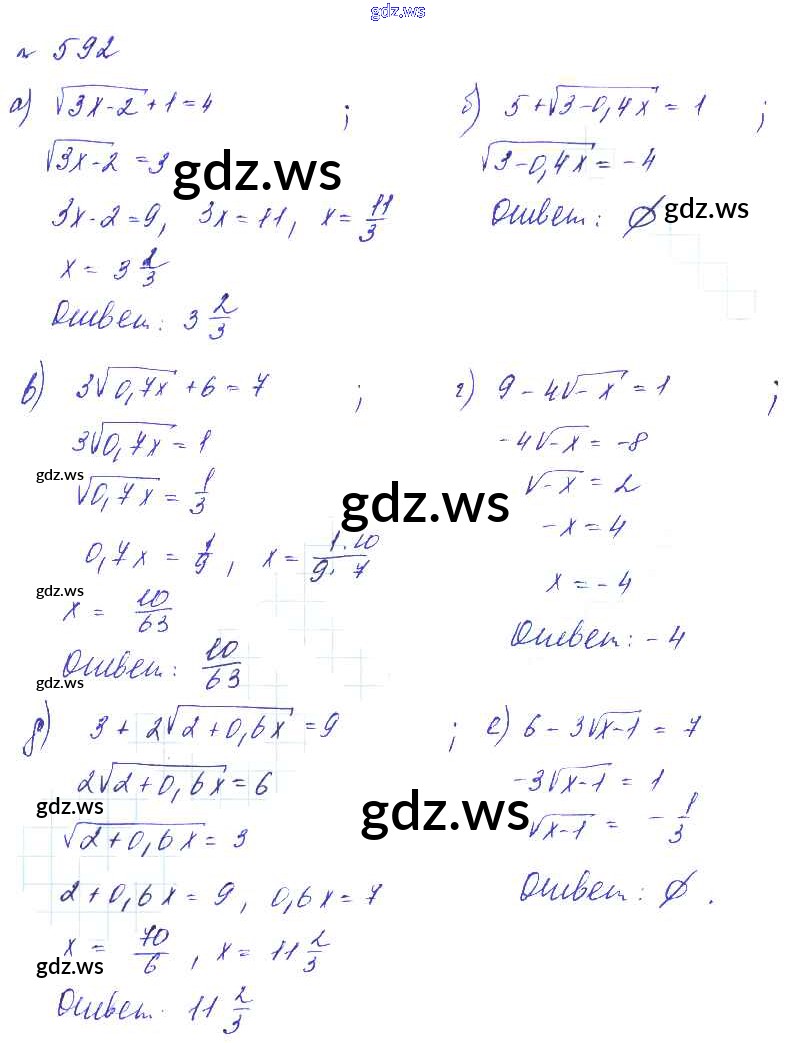 gdz.ws
№ 592
а) √(3x-2) + 1 = 4 ;
√(3x-2) = 3
gdz.ws
3x-2 = 9, 3x = 11, x = 11/3
x = 3 2/3
Ответ: 3 2/3
б) 5 + √(3-0,4x) = 1 ;
√(3-0,4x) = -4
Ответ: ∅
gdz.ws
в) 3√(0,7x) + 6 = 7 ;
3√(0,7x) = 1
gdz.ws
√(0,7x) = 1/3
gdz.ws
0,7x = 1/9, x = 1·10/9·7
gdz.ws
x = 10/63
Ответ: 10/63
gdz.ws
г) 9 - 4√(-x) = 1 ;
-4√(-x) = -8
√(-x) = 2
-x = 4
x = -4
Ответ: -4
д) 3 + 2√(2+0,6x) = 9 ;
2√(2+0,6x) = 6
gdz.ws
√(2+0,6x) = 3
gdz.ws
2+0,6x = 9, 0,6x = 7
x = 70/6, x = 11 2/3
gdz.ws
Ответ. 11 2/3
е) 6 - 3√(x-1) = 7
-3√(x-1) = 1
√(x-1) = -1/3
Ответ: ∅.